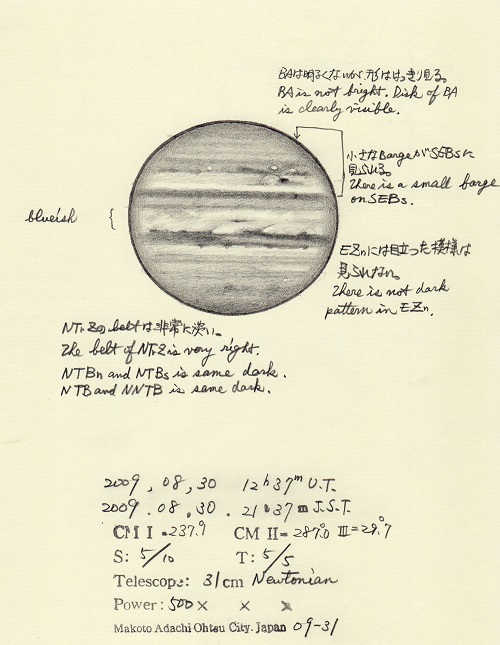 BAは明るくないが、形ははっきり見る。
BA is not bright. Disk of BA
is clearly visible.
小さなBargeがSEBsに
見られる。
There is a small barge
on SEBs.
blueish
EZnには目立った模様は
見られない。
There is not dark
pattern in EZn.
NTrZの belt は非常に淡い。
The belt of NTrZ is very right.
NTBn and NTBs is same dark.
NTB and NNTB is same dark.
2009, 08, 30 12h 37m U.T.
2009. 08. 30. 21h 37m J.S.T.
CM I = 237.9 CM II = 287.0 III = 29.7
S: 5/10 T: 5/5
Telescope: 31cm Newtonian
Power: 500× × ×
Makoto Adachi Ohtsu City. Japan 09-31